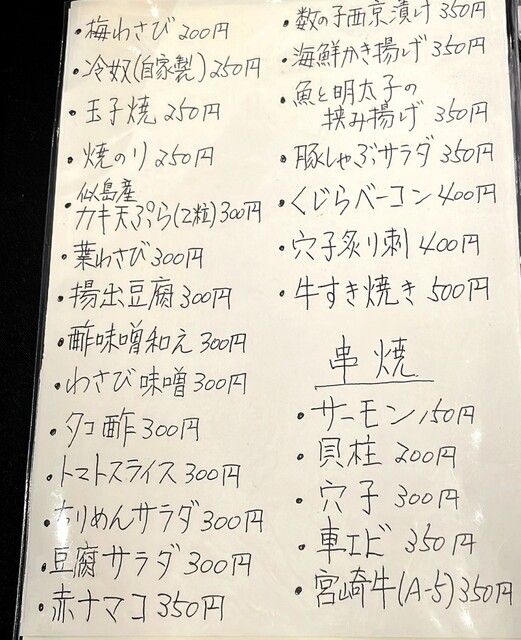 ・梅わさび 200円
・冷奴(自家製)250円
・玉子焼 250円
・焼のり 250円
・似島産
カキ天ぷら(2粒)300円
・葉わさび 300円
・揚出豆腐 300円
・酢味噌和え 300円
・わさび味噌 300円
・タコ酢 300円
・トマトスライス 300円
・ちりめんサラダ 300円
・豆腐サラダ 300円
・赤ナマコ 350円
・数の子西京漬け 350円
・海鮮かき揚げ 350円
・魚と明太子の
挟み揚げ 350円
・豚しゃぶサラダ 350円
・くじらベーコン 400円
・穴子炙り刺 400円
・牛すき焼き 500円
串焼
・サーモン 150円
・貝柱 200円
・穴子 300円
・車エビ 350円
・宮崎牛(A-5)350円